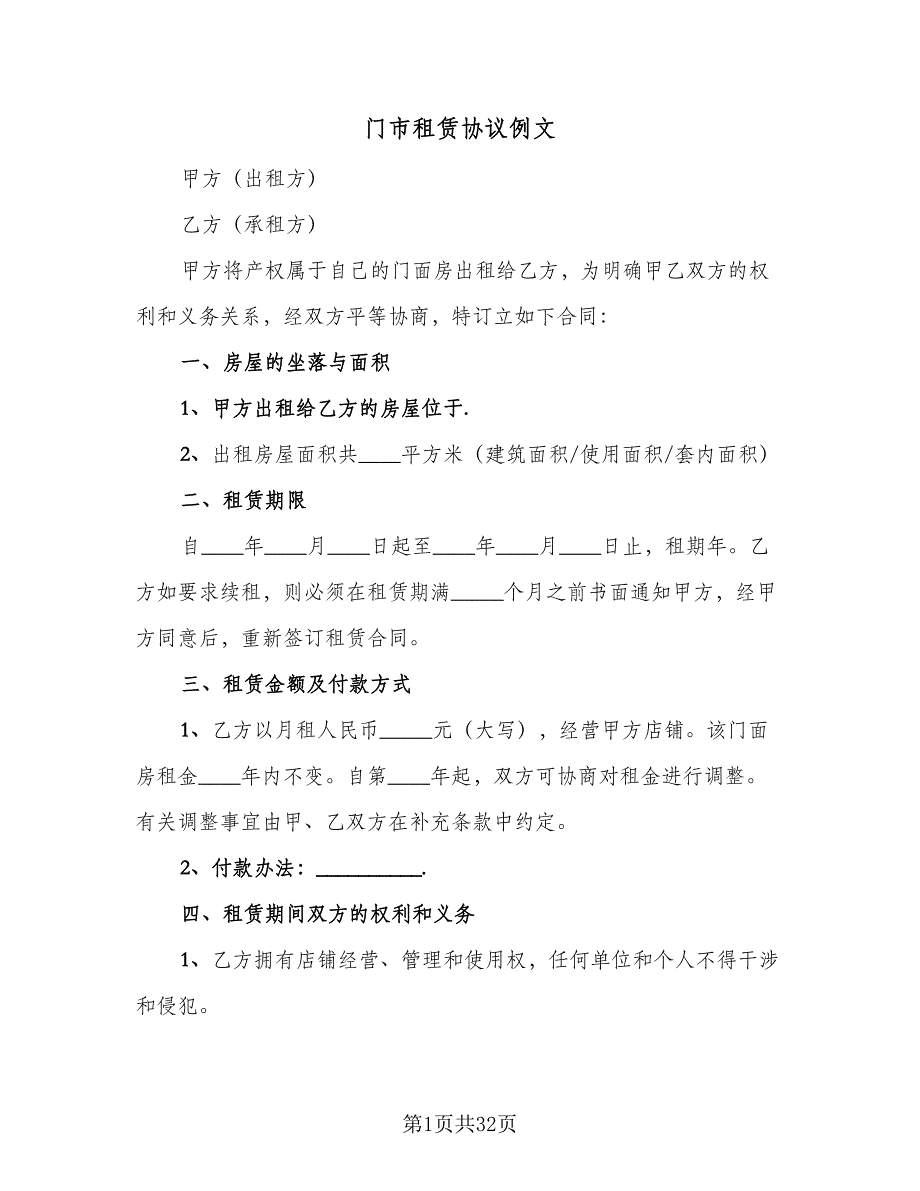 门市租赁协议例文
甲方（出租方）
乙方（承租方）
甲方将产权属于自己的门面房出租给乙方，为明确甲乙双方的权
利和义务关系，经双方平等协商，特订立如下合同：
一、房屋的坐落与面积
1、甲方出租给乙方的房屋位于.
2、出租房屋面积共____平方米（建筑面积/使用面积/套内面积）
二、租赁期限
自____年____月____日起至____年____月____日止，租期年。乙
方如要求续租，则必须在租赁期满_____个月之前书面通知甲方，经甲
方同意后，重新签订租赁合同。
三、租赁金额及付款方式
1、乙方以月租人民币_____元（大写），经营甲方店铺。该门面
房租金____年内不变。自第____年起，双方可协商对租金进行调整。
有关调整事宜由甲、乙双方在补充条款中约定。
2、付款办法：__________.
四、租赁期间双方的权利和义务
1、乙方拥有店铺经营、管理和使用权，任何单位和个人不得干涉
和侵犯。
第1页共32页